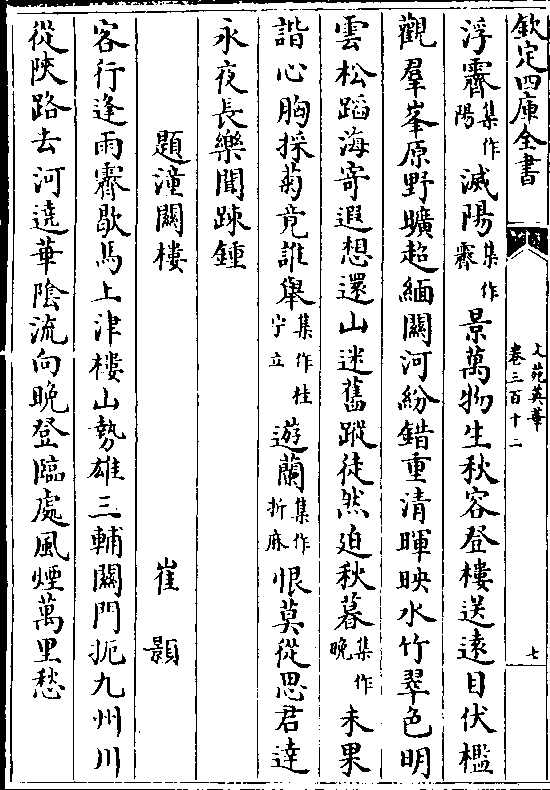 欽定四庫全書
文苑英華
卷三百十二
七
浮霽集作陽滅陽集作霽景萬物生秋容登樓送遠目伏檻
觀羣峯原野曠超緬關河紛錯重清暉映水竹翠色明
雲松蹈海寄遐想還山迷舊蹤徒然迫秋暮集作晚未果
諧心胸採菊竟誰舉集作桂宁立遊蘭集作折麻恨莫從思君達
永夜長樂聞踈鍾
題潼關樓 崔顥
客行逢雨霽歇馬上津樓山勢雄三輔關門扼九州川
從陝路去河遶華陰流向晚登臨處風煙萬里愁